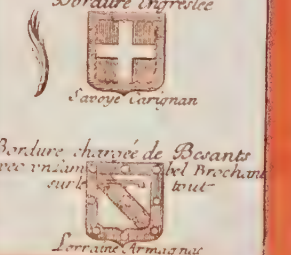 Bordure Ingreslée
Savoye Carignan
Bordure chargée de Besants
avec un Lam bel Brochant
sur le tout
Lorraine Armagnac